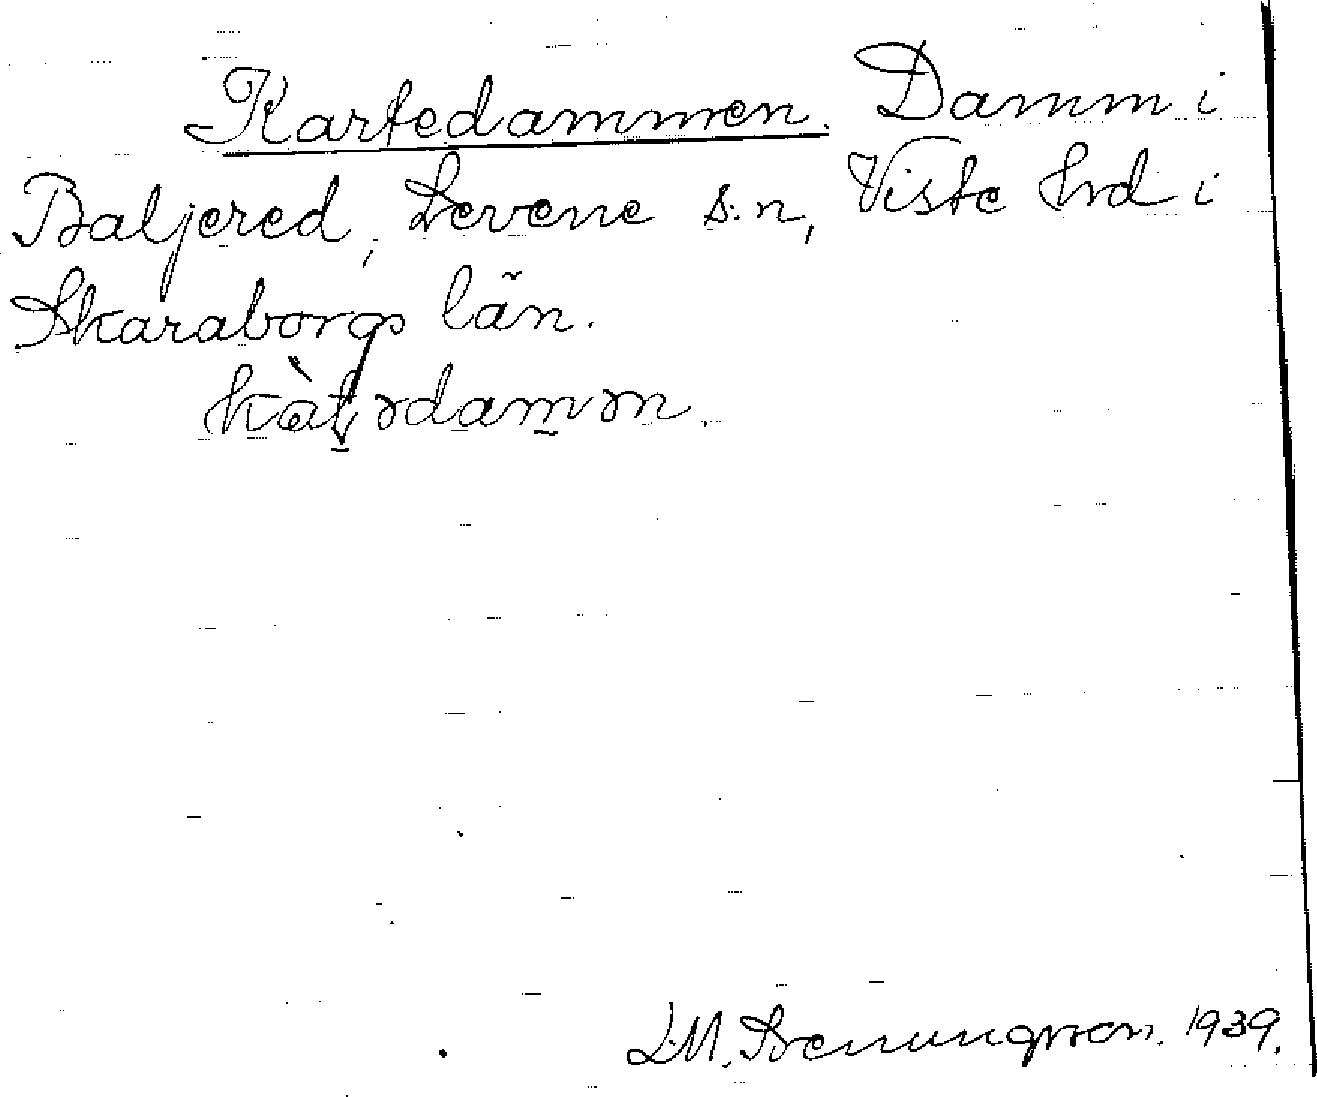 Kartedammen. Damm i
Baljered, Levene s:n, Viste hrd i
Skaraborgs län.
kàt̠ədam̠ən.
L.M. 1939.